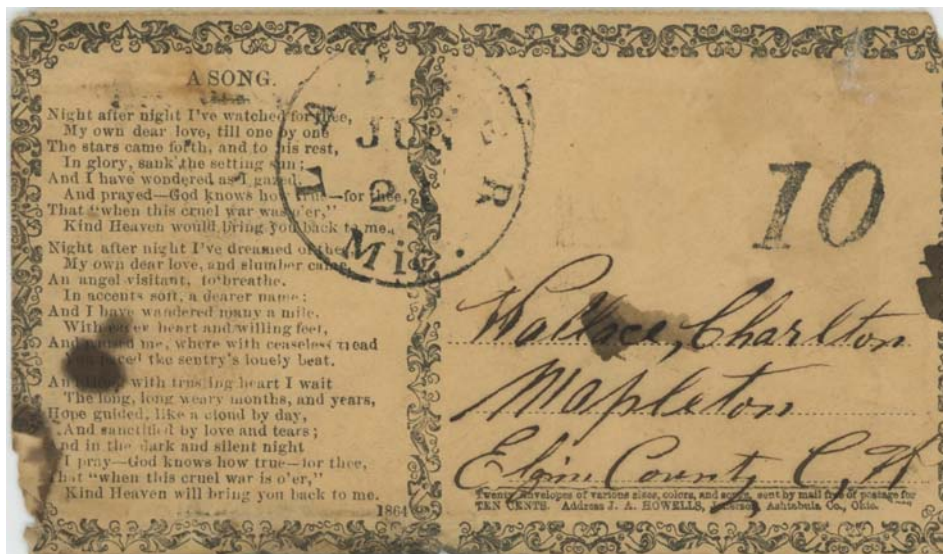 A SONG.
Night after night I've watched for thee,
My own dear love, till one by one
The stars came forth, and to his rest,
In glory, sank the setting sun;
And I have wondered as I gazed,
And prayed—God knows how true—for thee,
That "when this cruel war was o'er,"
Kind Heaven would bring you back to me.
Night after night I've dreamed of thee,
My own dear love, and slumber came,
An angel visitant, to breathe.
In accents soft, a dearer name;
And I have wandered many a mile,
With heart and willing feet,
And me, where with ceaseless tread
You paced the sentry's lonely beat.
with trusting heart I wait
The long, long weary months, and years,
Hope guided, like a cloud by day,
And sanctified by love and tears;
And in the dark and silent night
I pray—God knows how true—for thee,
That "when this cruel war is o'er,"
Kind Heaven will bring you back to me.
1864
JUN
21
Mic.
10
Wallace, Charlton
Mapleton
Elgin County C, W
Twenty Envelopes of various sizes, colors, and sent by mail free of postage for
TEN CENTS. Address J. A. HOWELLS, Jefferson, Ashtabula Co., Ohio.